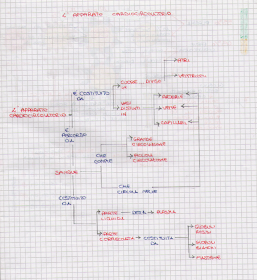 L' APPARATO CARDIOCIRCOLATORIO
L' APPARATO
CARDIOCIRCOLATORIO
È COSTITUITO
DA
CUORE
DIVISO
IN
ATRI
VENTRICOLI
VASI
DISTINTI
IN
ARTERIE
VENE
CAPILLARI
È
PERCORSO
DA
SANGUE
CHE
COMPIE
GRANDE
CIRCOLAZIONE
PICCOLA
CIRCOLAZIONE
CHE
CIRCOLA NELLE
COSTITUITO
DA
PARTE
LIQUIDA
PLASMA
PARTE
CORPUSCOLATA
COSTITUITA
DA
GLOBULI
ROSSI
GLOBULI
BIANCHI
PIASTRINE